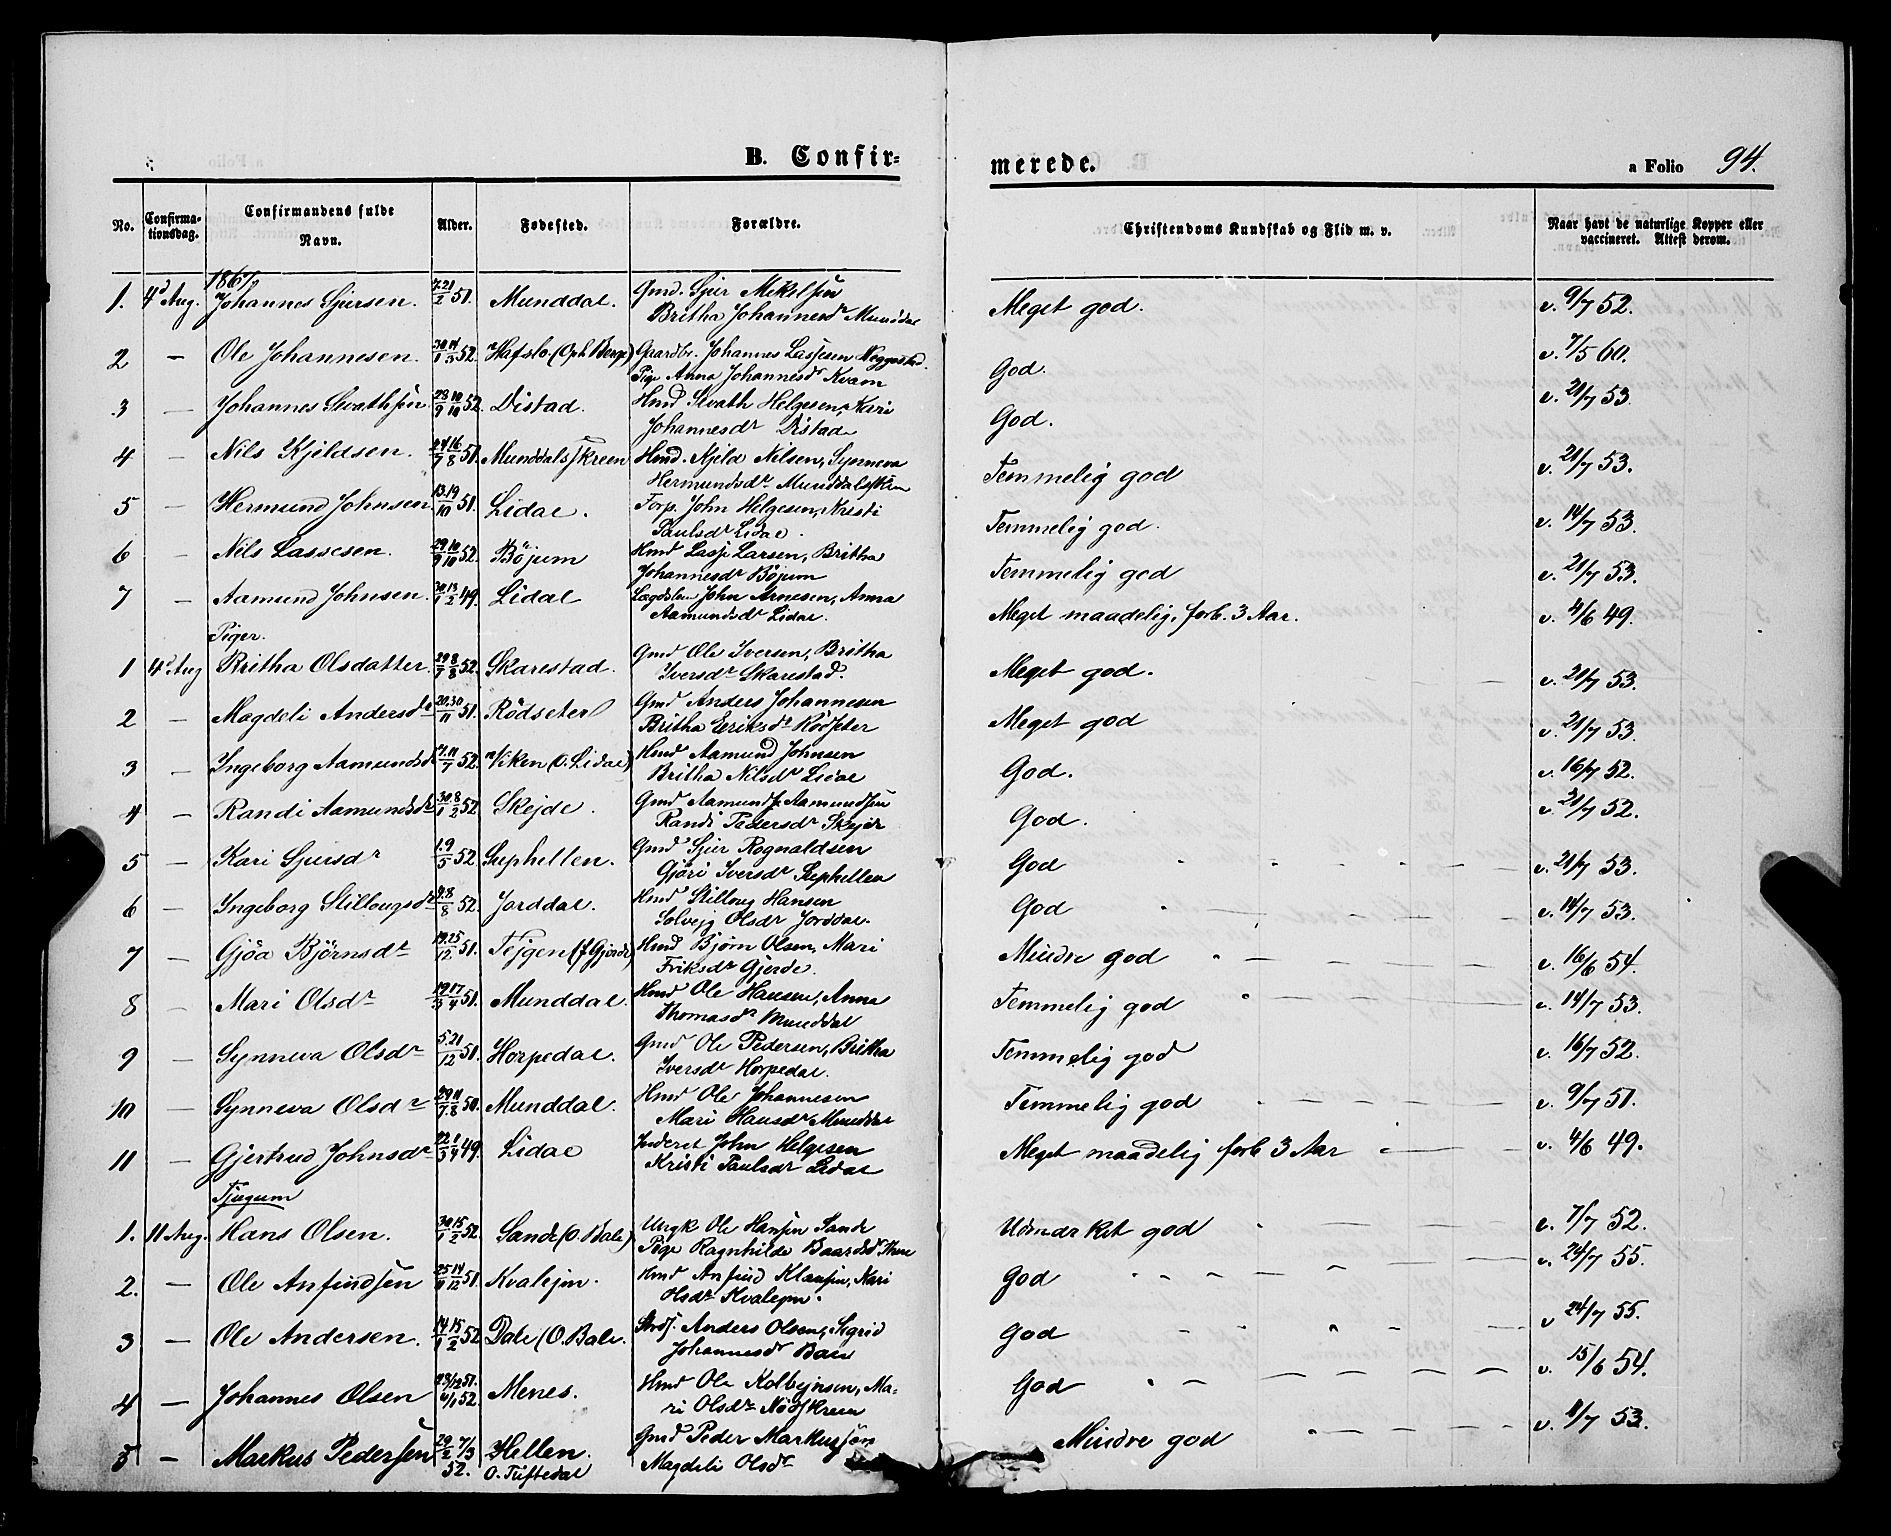 B. Confirmerede.
a Folio 94.
No. Confirmationsdag. Confirmandens fulde Navn. Alder. Fødested. Forældre. Christendoms Kundskab og Flid m. v. Naar havt de naturlige Kopper eller vaccineret. Attest derom.
1867
1. 4d Aug. Johannes Sjursen. 7.21/2 51. Munddal. Gmd. Sjur Mikelsen Meget god. v. 9/7 52.
Britha Johannesdr Munddal
2 — Ole Johannesen. 30/1 14/3 52. Hafslo (Oph. Berge) Gaardbr. Johannes Lassesen God. v. 7/5 60.
Pige Anna Johannesdr Kvam
3 — Johannes Sivathsen 28/9 10/10 52. Distad. Hmd Sivath Helgesen, Kari God. v. 21/7 53.
Johannesdr Distad
4 — Nils Kjeldsen. 24/7 16/8 51. Munddalsskreen Hmd. Kjeld Nilsen, Synneva Temmelig god v. 21/7 53.
Hermundsdr Munddalsskren
5 — Hermund Johnsen 13.19/10 51. Lidal. Torp. John Helgesen, Kristi Temmelig god. v. 14/7 53.
Paulsdr Lidal.
6 — Nils Lassesen. 29/9 10/10 52. Böjum Hmd Lasse Larsen, Britha Temmelig god v. 21/7 53.
Johannesdr Böjum
7 — Aamund Johnsen. 30/1 13/2 49. Lidal Lægdslem John Arnesen, Anna Meget maadelig, forb. 3 Aar. v. 4/6 49.
Aamundsdr Lidal.
Piger.
1 4d Aug Britha Olsdatter 29/7 8/8 52. Skarestad. Gmd Ole Iversen, Britha Meget god. v. 21/7 53.
Iversdr Skarestad.
2 — Magdeli Andersdr 20.30/11 51. Rödseter Gmd Anders Johannesen Meget god v. 21/7 53.
Britha Eriksdr Rödseter
3 — Ingeborg Aamundsdr 11/7 52. Viken (O. Lidal) Hmd Aamund Johnsen God. v. 16/7 52.
Britha Nilsdr Lidal
4 — Randi Aamundsdr 30/1 8/2 52. Skejde. Gmd Aamund Aamundsen God. v. 21/7 52.
Randi Skejde
5 — Kari Sjursdr 1.9/5 52. Suphellen. Gmd Sjur Rognaldsen God v. 21/7 53.
Gjöri Iversdr Suphellen
6 — Ingeborg Stillougsdr 4.8/8 52. Jorddal. Hmd Stilloug Hansen God v. 14/7 53.
Solvejg Olsdr Jorddal.
7 — Gjöa Björnsdr 19.25/12 51. Tejgen (f. Gjerde) Hmd Bjørn Olsen, Mari Mindre god v. 16/6 54.
Eriksdr Gjerde.
8 — Mari Olsdr 19/3 17/4 51. Munddal. Hmd Ole Hansen, Anna Temmelig god v. 14/7 53.
Thomasdr Munddal
9 — Synneva Olsdr 5.21/12 51. Horpedal. Gmd Ole Pedersen, Britha Temmelig god v. 16/7 52.
Iversdr Horpedal.
10 — Synneva Olsdr 29/7 11/8 50. Munddal. Hmd Ole Johannesen Temmelig god v. 9/7 51.
Mari Hansdr Munddal
11 — Gjertrud Johnsdr 22/3 1/4 49. Lidal Inderst John Helgesen Meget maadelig forb 3 Aar v. 4/6 49.
Kristi Paulsdr Lidal
Tjugum
1. 11 Aug. Hans Olsen. 30/1 15/2 52. Sande (O. Bale) Ungk Ole Hansen Sande Udmærket god v. 7/7 52.
Pige Ragnhilde Baardsd.
2. — Ole Anfindsen 25/11 14/12 51. Kvalejm. Hmd Anfind Klausen, Kari God v. 24/7 55.
Olsdr Kvalejm.
3 — Ole Andersen. 14/1 15/2 52 Dale (O. Bale. Strds. Anders Olsen, Sigrid God v 24/7 55.
Johannesdr Bale
4 — Johannes Olsen 23/12 51. 4/1 52. Menes. Hmd Ole Kolbejnsen, Ma- God v. 15/6 54.
ri Olsdr Nödskreen
5 — Markus Pedersen 29/2 7/3 52. Hellen. O. Tuftedal Gmd Peder Markussen Mindre god v. 8/7 53.
Magdeli Olsdr